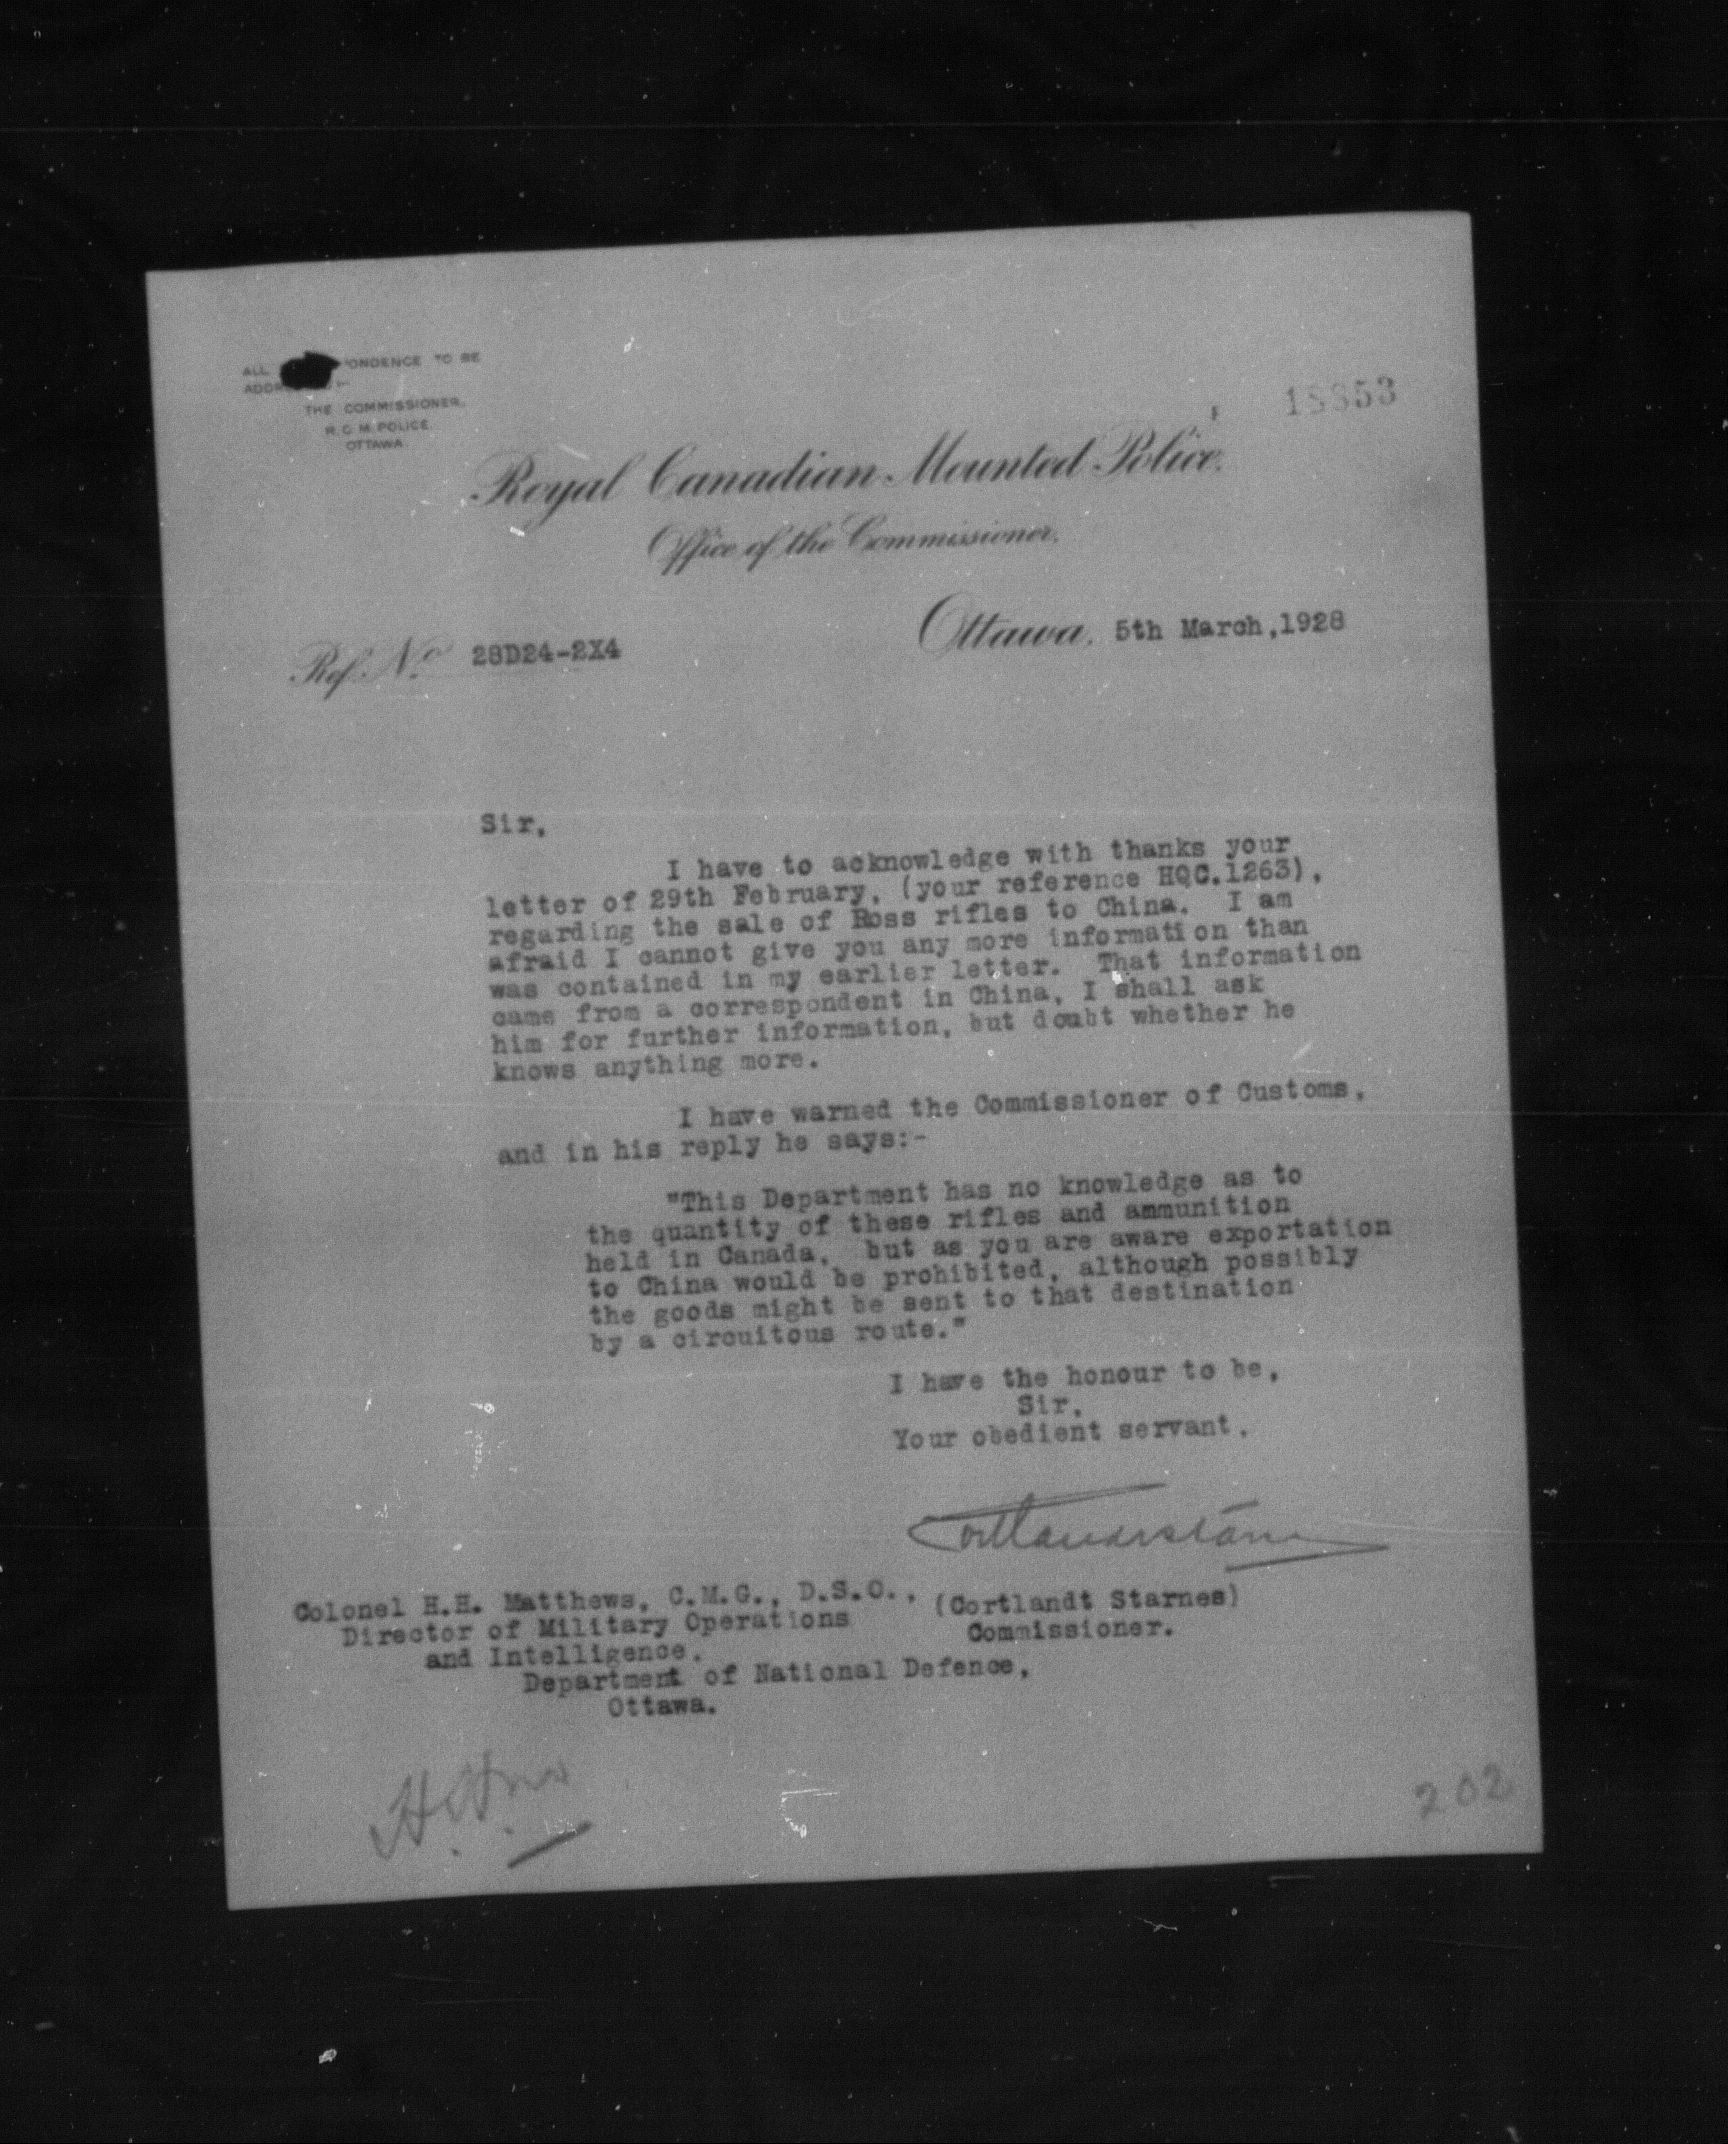 ALL ONDENCE TO BE
ADDR
THE COMMISSIONER,
R. C. M. POLICE
OTTAWA.
Royal Canadian Mounted Police.
Office of the Commissioner.
Ottawa, 5th March,1928
Ref. No 28D24-2X4
Sir,
I have to acknowledge with thanks your
letter of 29th February, (your reference HQC.1263),
regarding the sale of Ross rifles to China. I am
afraid I cannot give you any more information than
was contained in my earlier letter. That information
came from a correspondent in China, I shall ask
him for further information, but doubt whether he
knows anything more.
I have warned the Commissioner of Customs,
and in his reply he says:-
"This Department has no knowledge as to
the quantity of these rifles and ammunition
held in Canada, but as you are aware exportation
to China would be prohibited, although possibly
the goods might be sent to that destination
by a circuitous route."
I have the honour to be,
Sir,
Your obedient servant,
Cortlandt Starnes
(Cortlandt Starnes)
Commissioner.
Colonel H.H. Matthews, C.M.G., D.S.O.,
Director of Military Operations
and Intelligence,
Department of National Defence,
Ottawa.
202